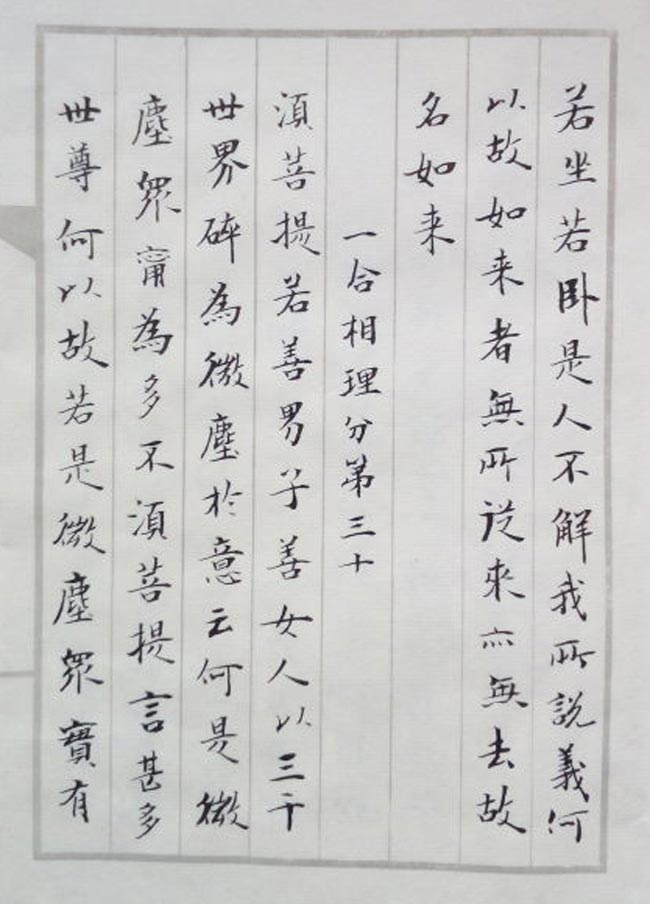 若坐若卧是人不解我所説義何
以故如来者無所従來亦無去故
名如来
一合相理分第三十
湏菩提若善男子善女人以三千
世界碎為微塵於意云何是微
塵衆甯為多不湏菩提言甚多
世尊何以故若是微塵衆實有